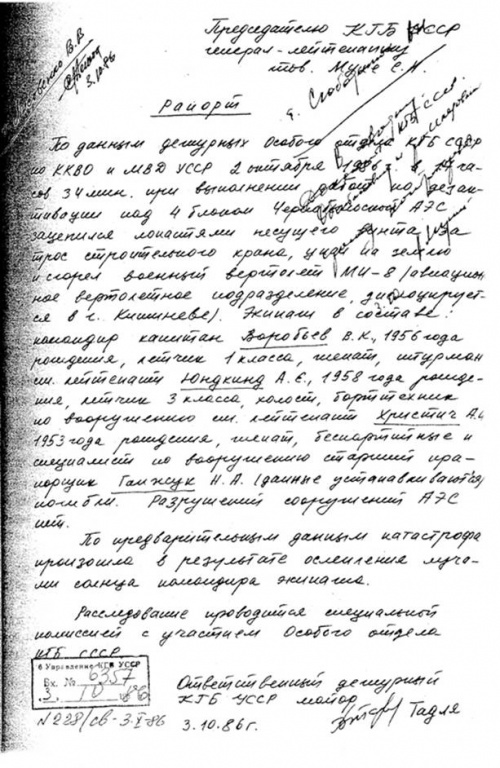 Председателю КГБ УССР
генерал-лейтенанту
тов. Мухе С.Н.
3.10.86
Рапорт
По данным дежурных Особого отдела КГБ СССР
по ККВО и МВД УССР 2 октября 1986 г. в 14 ча-
сов 34 мин. при выполнении работ по дезак-
тивации над 4 блоком Чернобыльской АЭС
зацепился лопастями несущего винта за
трос строительного крана, упал на землю
и сгорел военный вертолет МИ-8 (авиацион-
ное вертолетное подразделение, дислоцирует-
ся в г. Кишиневе). Экипаж в составе:
командир капитан Воробьев В.К., 1956 года
рождения, летчик 1 класса, женат, штурман
ст. лейтенант Юндкинд А.Е., 1958 года рожде-
ния, летчик 3 класса, холост, борттехник
по вооружению ст. лейтенант Христич А.
1953 года рождения, женат, беспартийные и
специалист по вооружению старший пра-
порщик Ганжук Н.А. (данные устанавливаются)
погибли. Разрушений сооружений АЭС
нет.
По предварительным данным катастрофа
произошла в результате ослепления луча-
ми солнца командира экипажа.
Расследование проводится специальной
комиссией с участием Особого отдела
КГБ СССР.
6 Управление КГБ УССР
Вх. № 6357
3. 10 86
N 228/св-3.X-86
Ответственный дежурный
КГБ УССР майор
Гадля
3.10.86г.